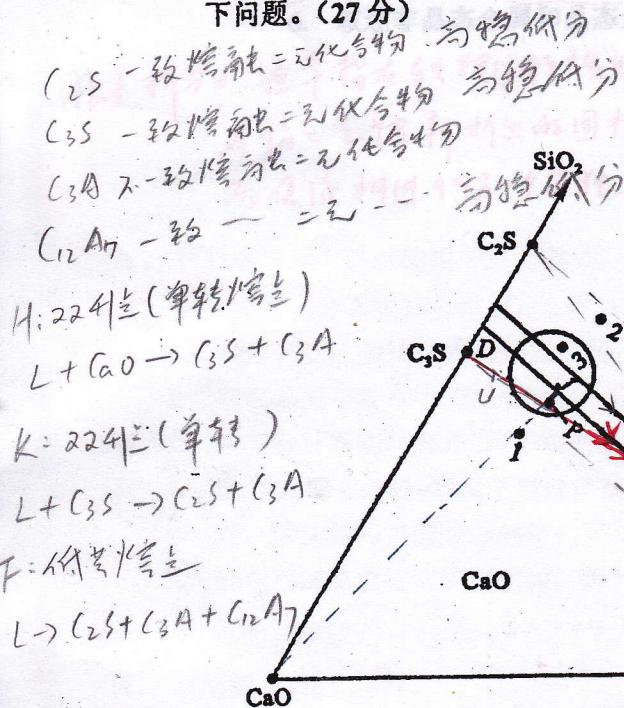 下问题。（27分）
C₂S 一致熔融二元化合物 高稳低分
C₃S 一致熔融二元化合物 高稳低分
C₃A 不一致熔融二元化合物
C₁₂A₇ 一致 —— 二元 -- 高稳低分
H:双升点(单转熔点)
L+CaO→C₃S+C₃A
K:双升点(单转)
L+C₃S→C₂S+C₃A
F:低共熔点
L→C₂S+C₃A+C₁₂A₇
SiO₂
C₂S
2
C₃S D
3
U
P
1
CaO
CaO